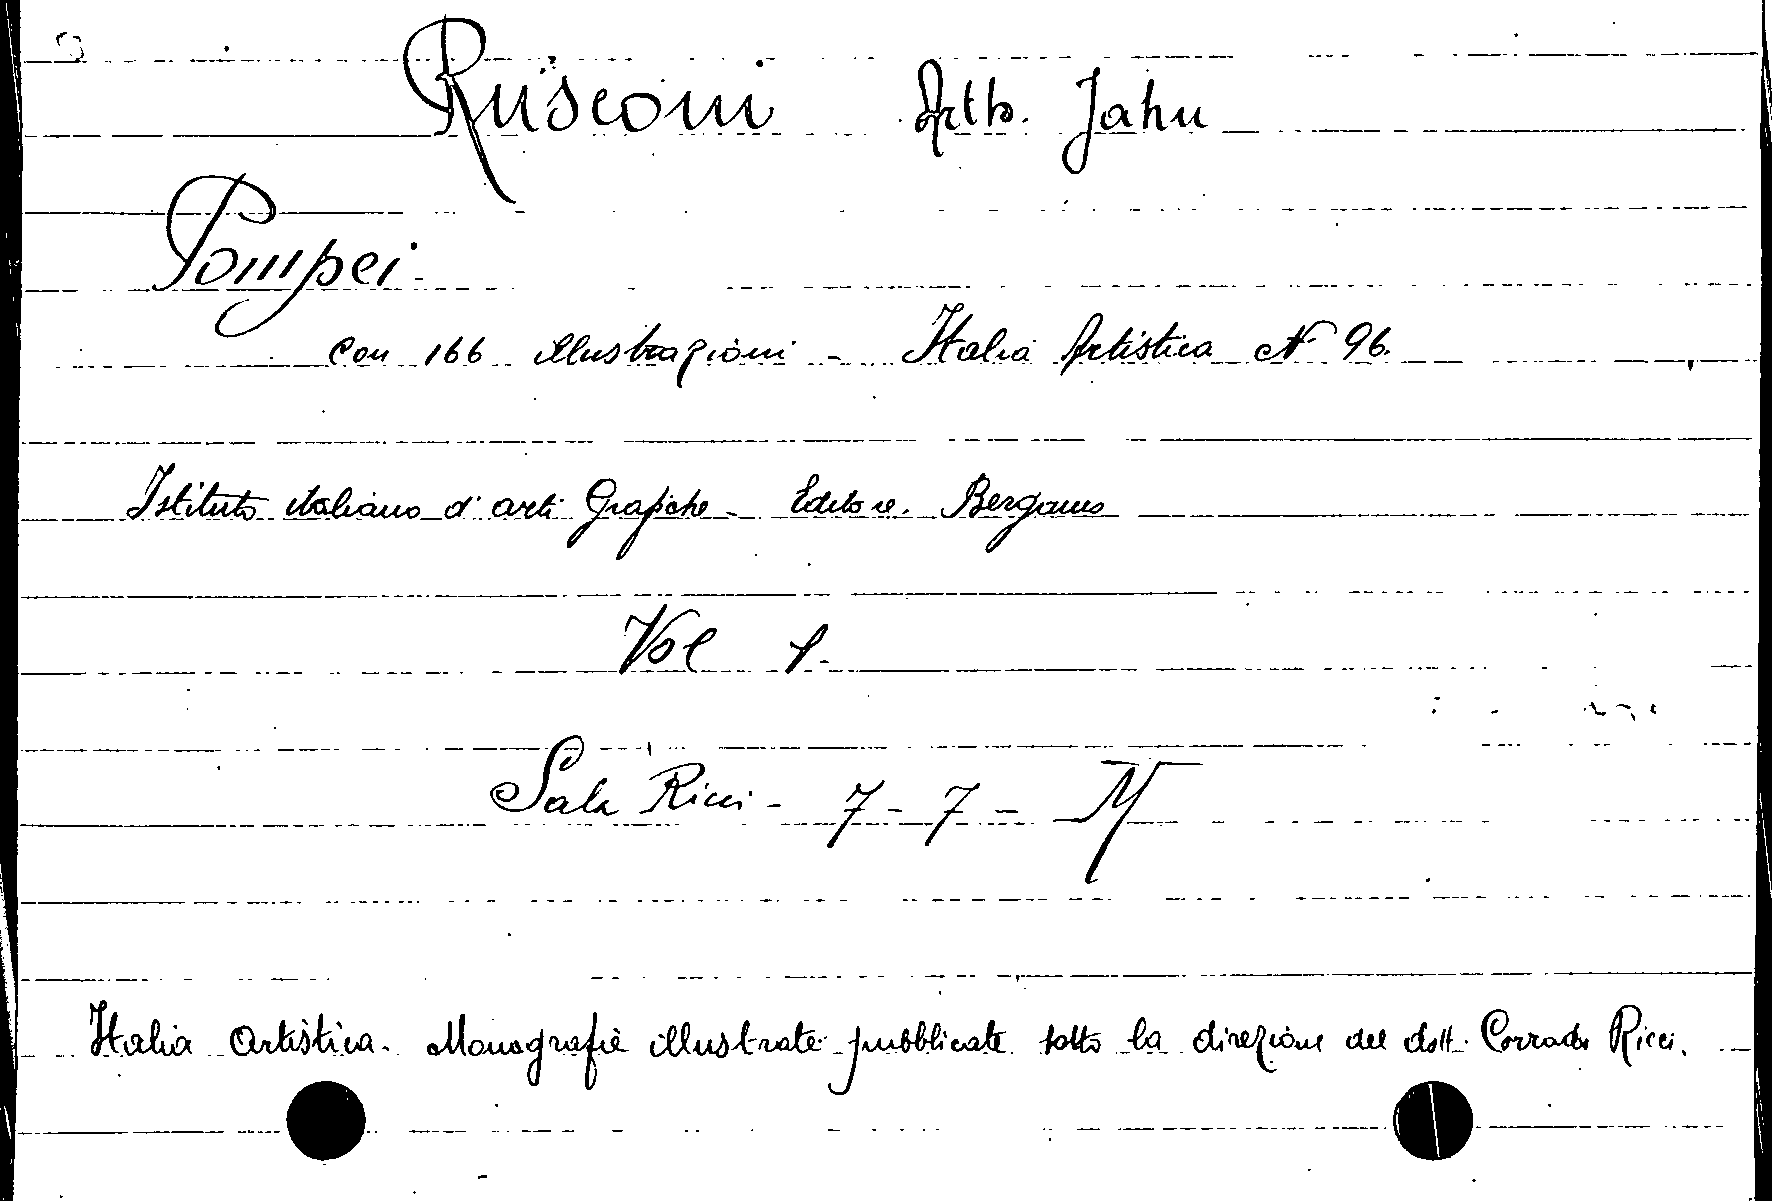 Rusconi Artto. Jahn
Pompei.
con 166 illustrazioni - Italia Artistica N 96.
Istituto italiano d'arti Grafiche - Editore. Bergamo
Vol 1.
Sala Ricci - 7 - 7 - M
Italia Artistica. Monografie illustrate pubblicate sotto la direzione del dott. Corrado Ricci.